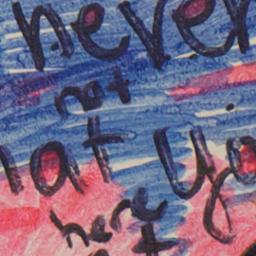 never
not
at yo
here